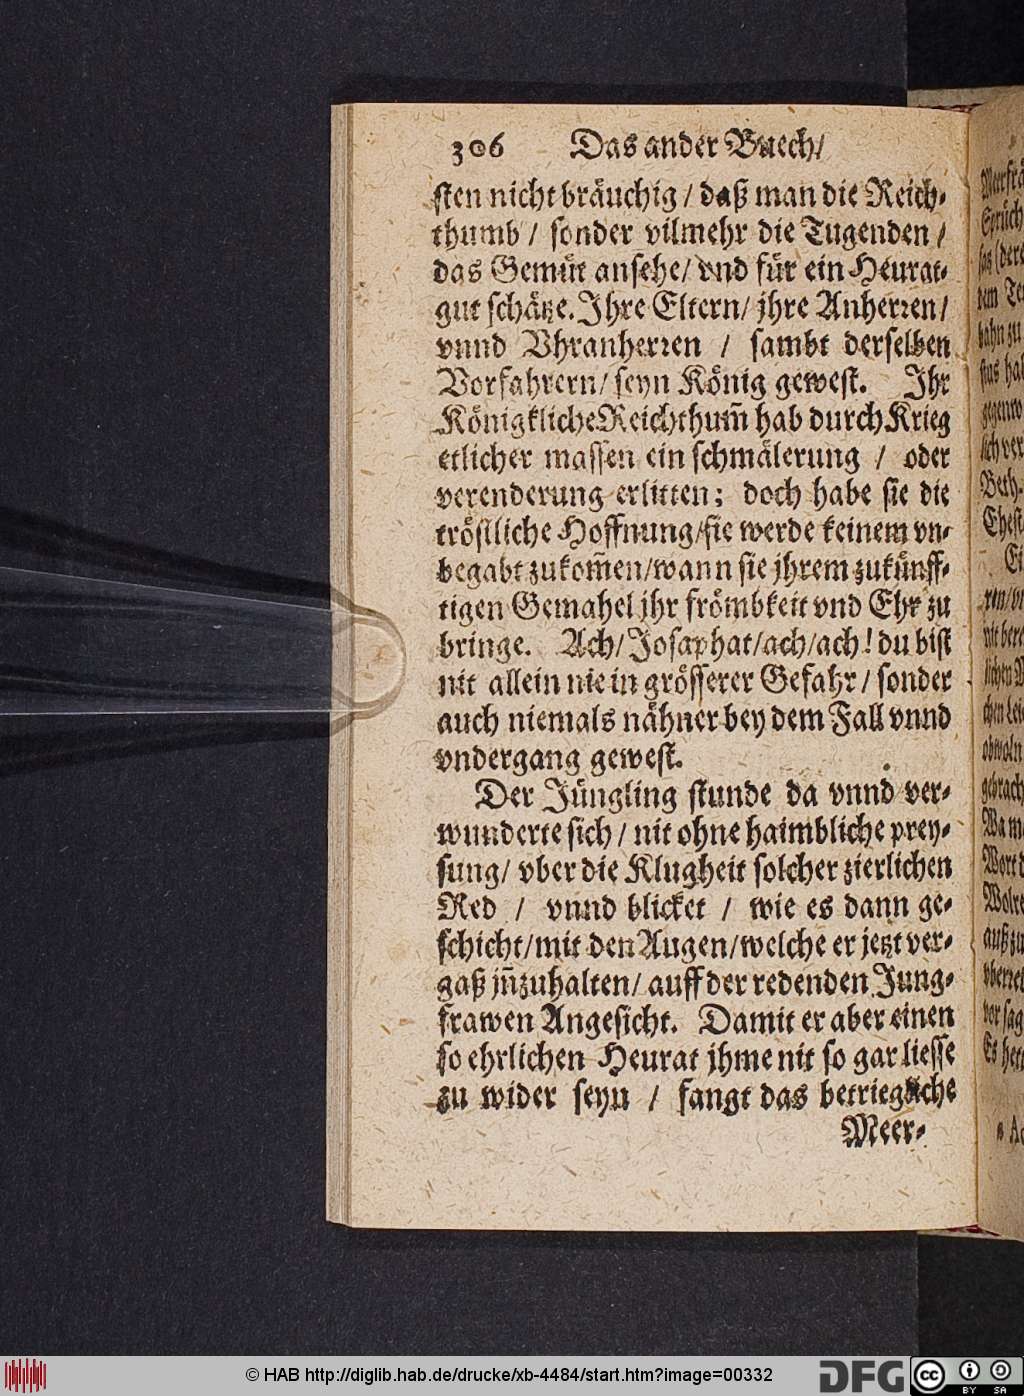 306 Das ander Buech/
sten nicht bräuchig / daß man die Reich-
thumb / sonder vilmehr die Tugenden /
das Gemüt ansehe/ vnd für ein Heurat-
gut schätze. Ihre Eltern/ jhre Anherren/
vnnd Vhranherren / sambt derselben
Vorfahrern/ seyn König gewest. Ihr
Königkliche Reichthum̃ hab durch Krieg
etlicher massen ein schmälerung / oder
verenderung erlitten; doch habe sie die
tröstliche Hoffnung/sie werde keinem vn-
begabt zukom̃en/wann sie jhrem zukünff-
tigen Gemahel jhr frömbkeit vnd Ehr zu
bringe. Ach/ Josaphat/ach/ach! du bist
nit allein nie in grösserer Gefahr / sonder
auch niemals nähner bey dem Fall vnnd
vndergang gewest.
Der Jüngling stunde da vnnd ver-
wunderte sich / nit ohne haimbliche prey-
sung/ vber die Klugheit solcher zierlichen
Red / vnnd blicket / wie es dann ge-
schicht/mit den Augen/welche er jetzt ver-
gaß jñzuhalten/ auff der redenden Jung-
frawen Angesicht. Damit er aber einen
so ehrlichen Heurat jhme nit so gar liesse
zu wider seyn / fangt das betriegliche
Meer-
© HAB http://diglib.hab.de/drucke/xb-4484/start.htm?image=00332
DFG
cc BY SA